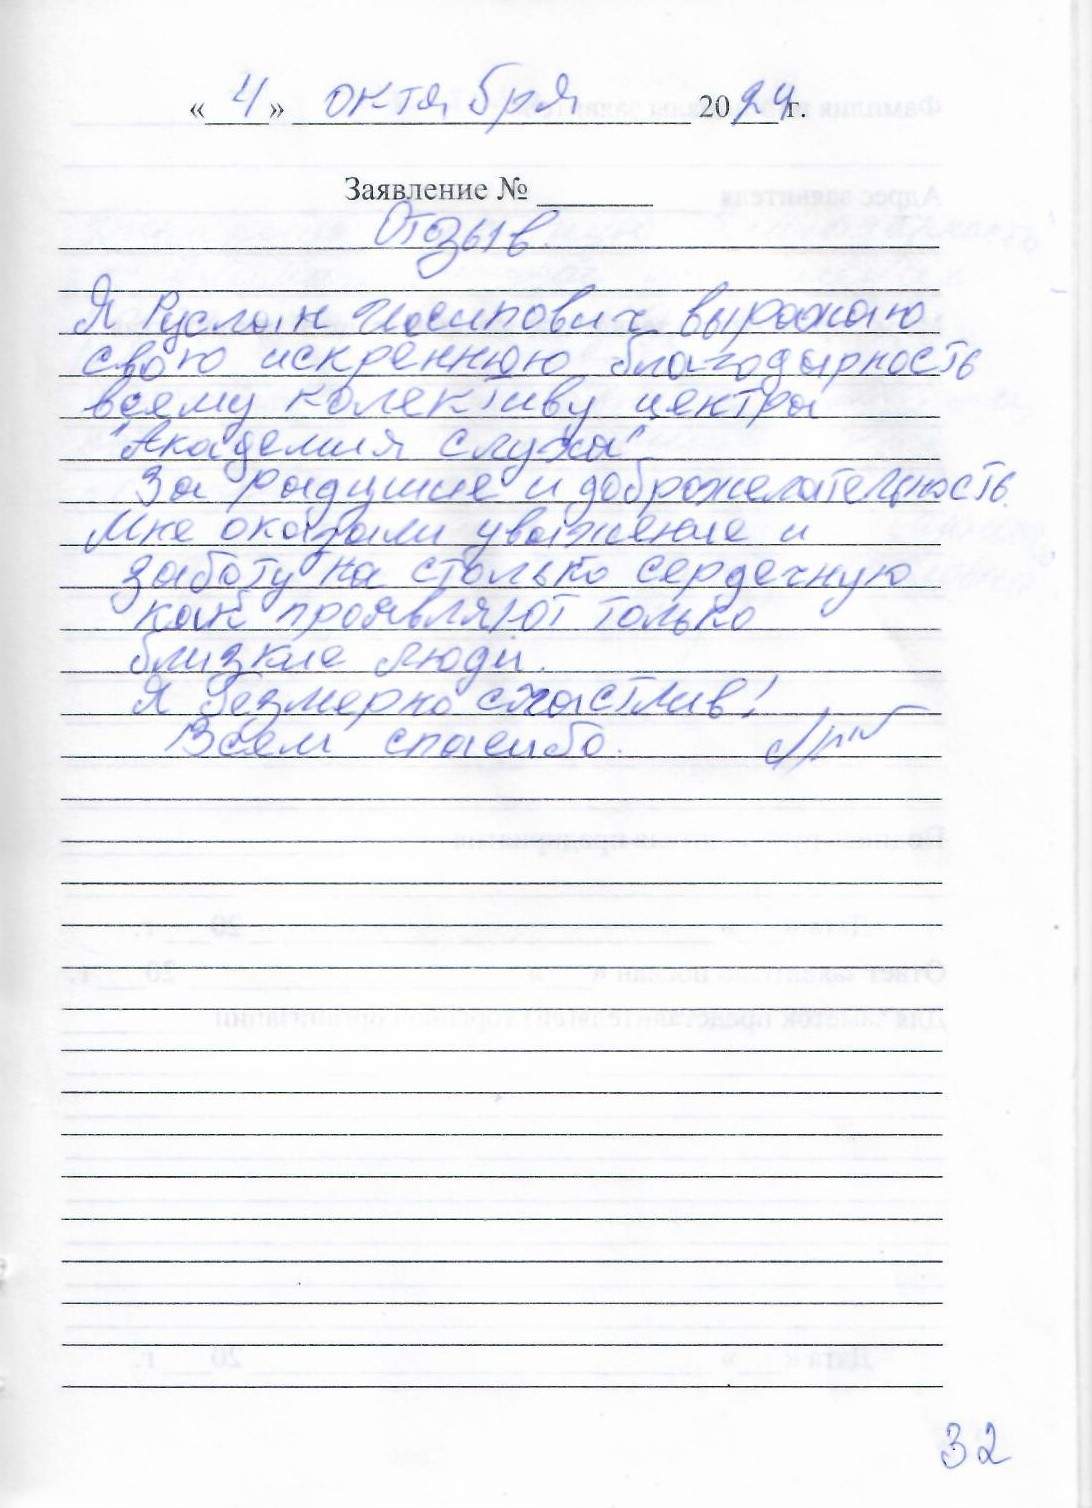 «4» октября 2024 г.
Заявление № ________
Отзыв
Я Руслан Иосипович выражаю
свою искреннюю благодарность
всему колективу центра
"Академия слуха"
За радушие и доброжелательность.
Мне оказали уважение и
заботу на столько сердечную
как проявляют только
близкие люди.
Я безмерно счастлив!
Всем спасибо.
32